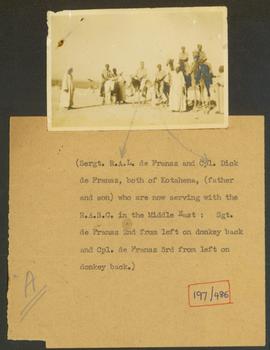 (Sergt. R.A.L. de Fransz and Cpl. Dick
de Fransz, both of Kotahena, (father
and son) who are now serving with the
R.A.S.C. in the Middle East : Sgt.
de Fransz 2nd from left on donkey back
and Cpl. de Fransz 3rd from left on
donkey back.)
A
197/486